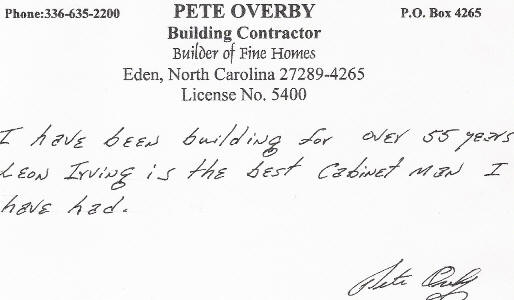 Phone:336-635-2200 PETE OVERBY P.O. Box 4265
Building Contractor
Builder of Fine Homes
Eden, North Carolina 27289-4265
License No. 5400
I have been building for over 55 years
Leon Irving is the best Cabinet man I
have had.
Pete Overby